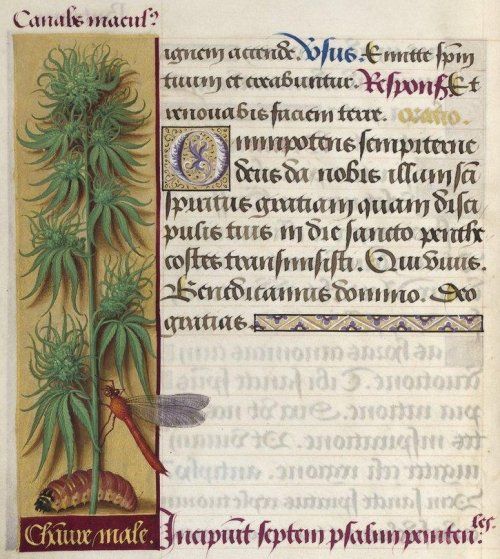 Canabs macul?
ignem accende. Vsus. Emitte spm
tuum et creabuntur. Respons. Et
renouabis faciem terre. Oratio.
Omnipotens sempiterne
deus da nobis illum sci
spiritus gratiam quam disci
pulis tuis in die sancto penthe
costes transmisisti. Qui viuis.
Benedicamus domino. Deo
gratias.
Chãure male.
Incipiũt septem psalmi peniten.les.